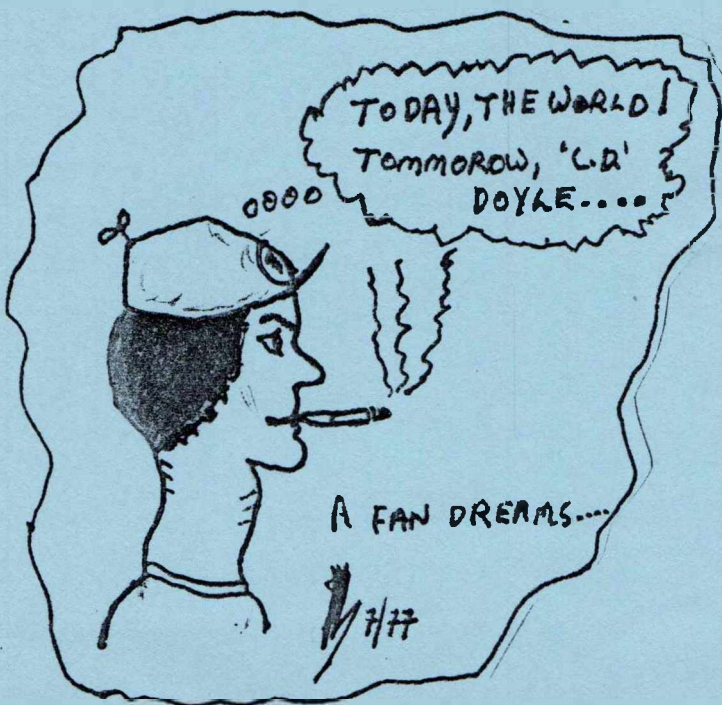 TODAY, THE WORLD!
TOMMOROW, 'C.D.'
DOYLE....
A FAN DREAMS....
7/77